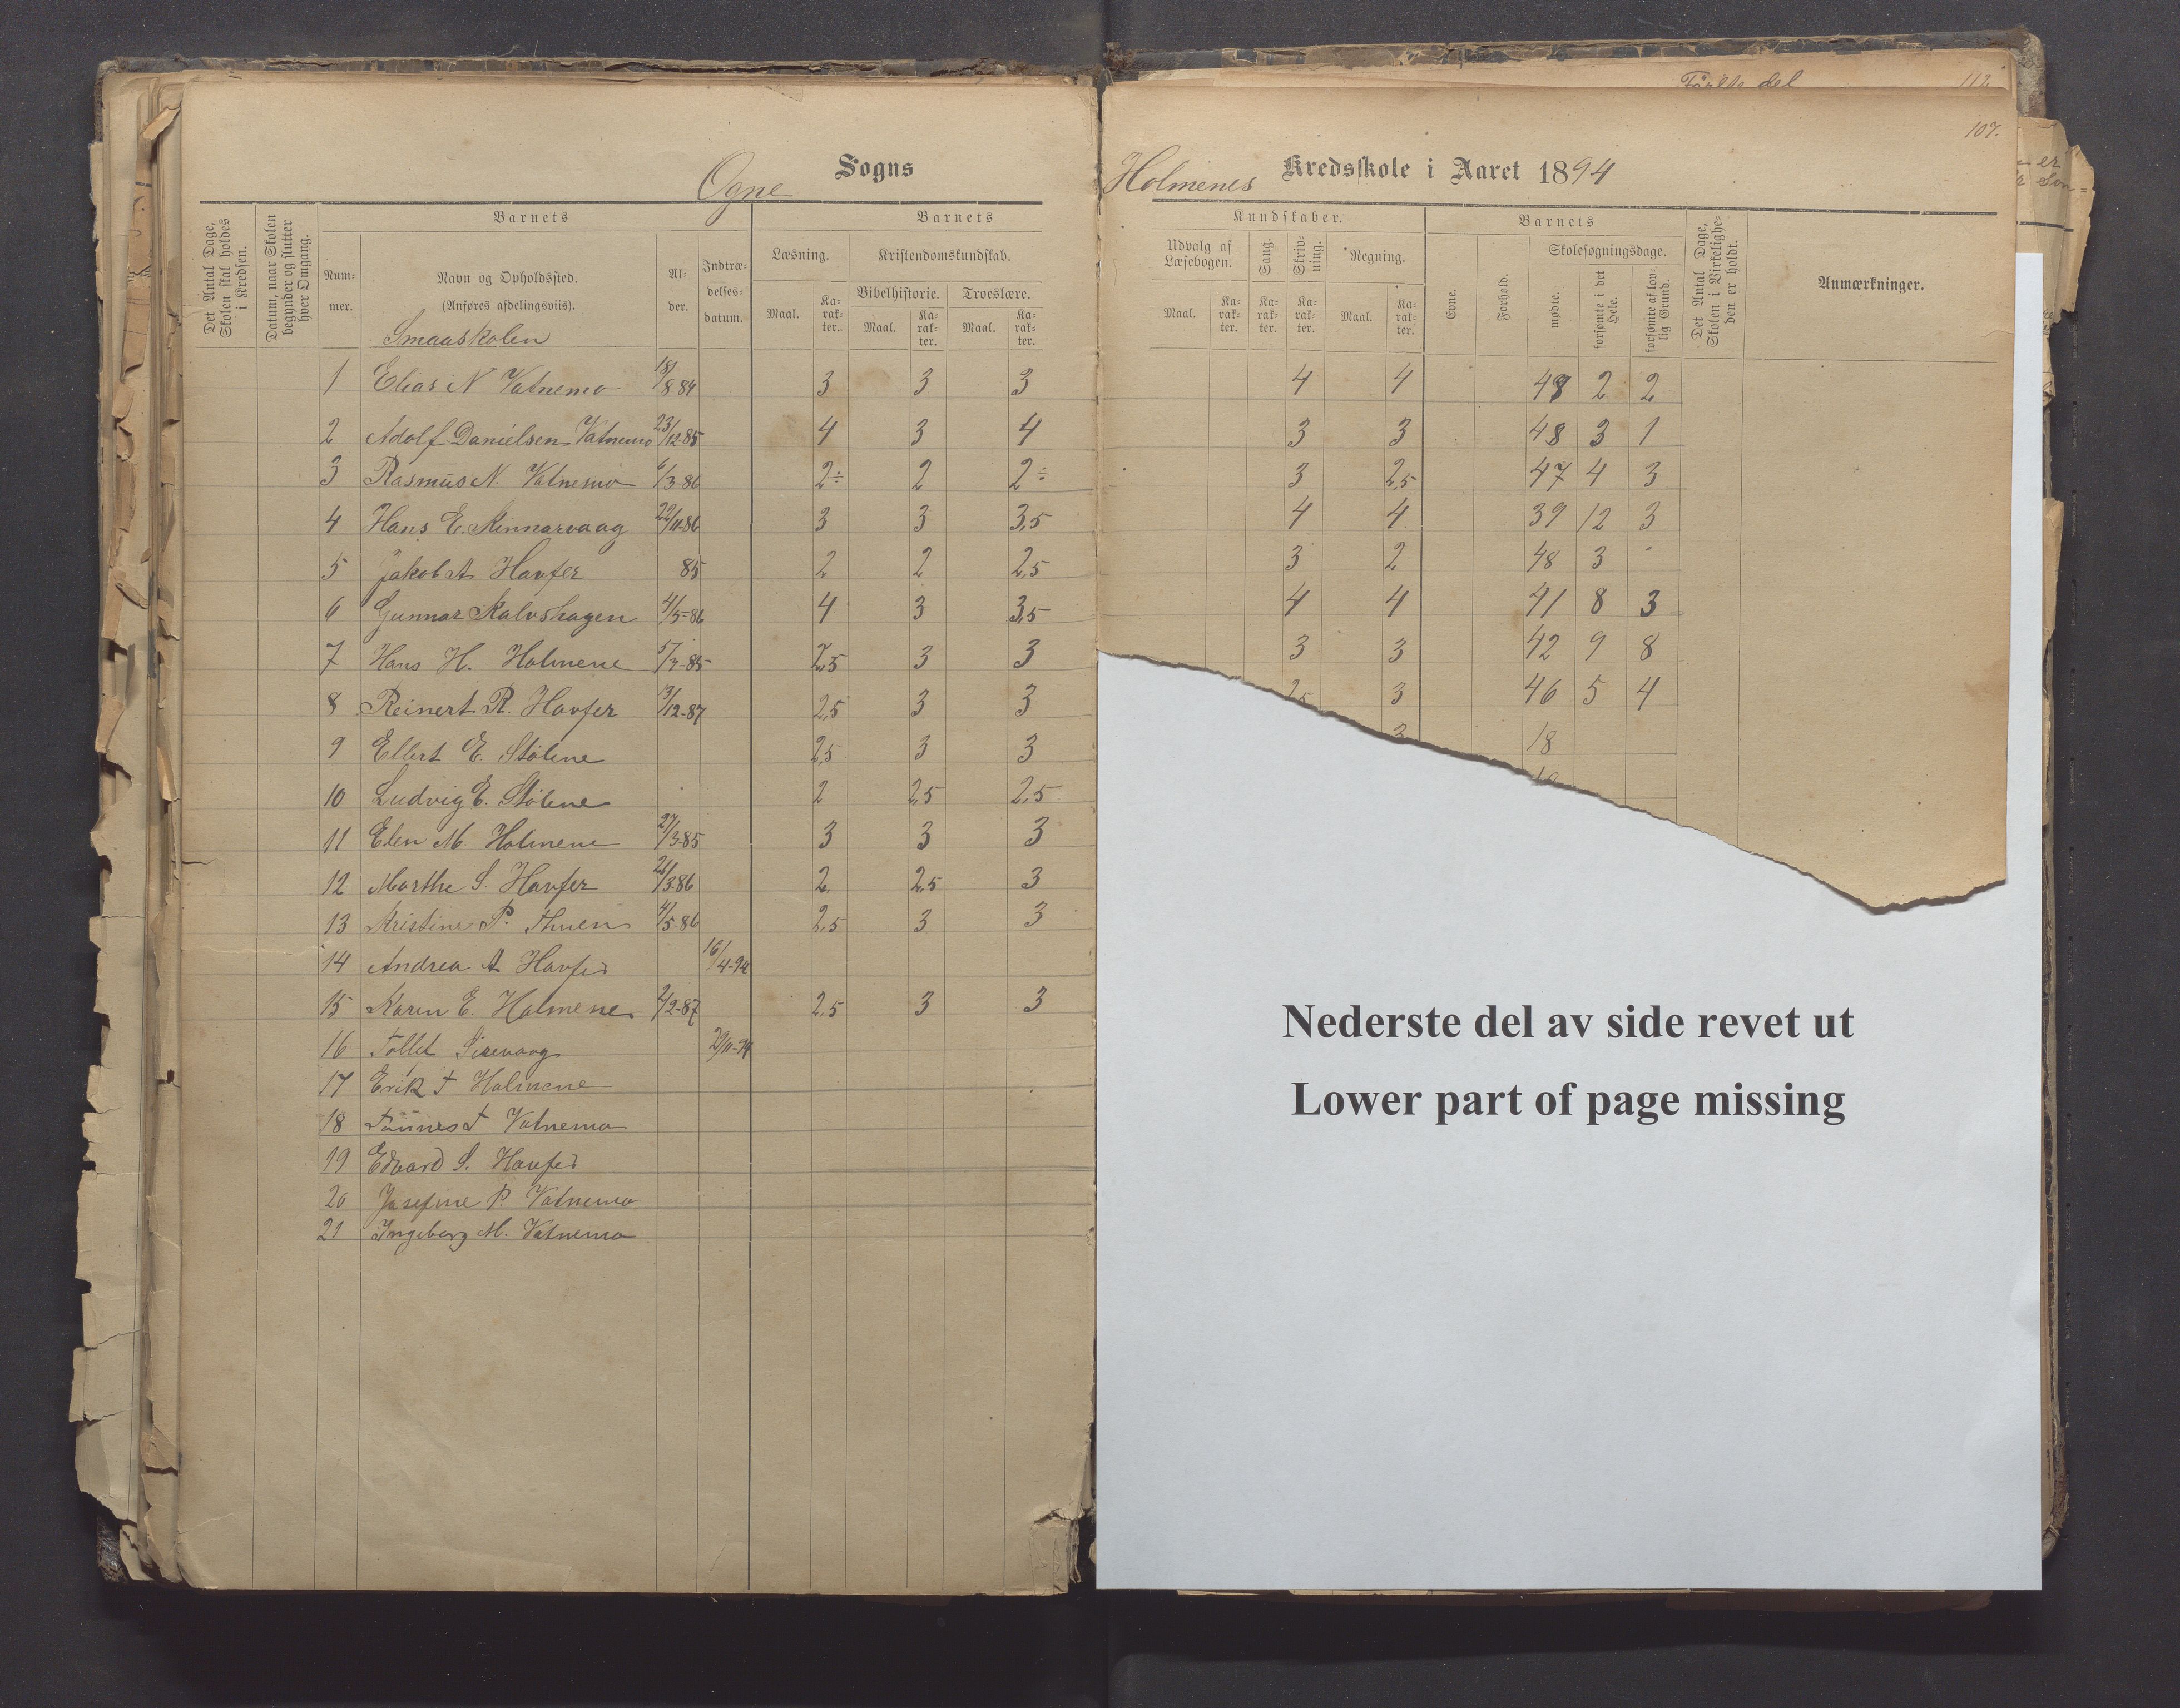 Første del 112
107.
Ogne Sogns Holmenes Kredsskole i Aaret 1894
Det Antal Dage, Skolen skal holdes i Kredsen.
Datum, naar Skolen begynder og slutter hver Omgang.
Barnets
Num-mer.
Navn og Opholdssted.
(Anføres afdelingsviis).
Smaaskolen
Al-der.
Indtræ-delses-datum.
Barnets Kundskaber.
Læsning.
Maal. Ka-rak-ter.
Kristendomskundskab.
Bibelhistorie. Troeslære.
Maal. Ka-rak-ter. Maal. Ka-rak-ter.
Udvalg af Læsebogen.
Maal. Ka-rak-ter.
Sang. Ka-rak-ter.
Skriv-ning. Ka-rak-ter.
Regning.
Maal. Ka-rak-ter.
Barnets
Evne.
Forhold.
Skolesøgningsdage.
mødte.
forsømte i det Hele.
forsømte af lov-lig Grund.
Det Antal Dage, Skolen i Virkelighe-den er holdt.
Anmærkninger.
1 Elias N Vatnemo 18/8-84 3 3 3 4 4 48 2 2
2 Adolf Danielsen Vatnemo 23/12-85 4 3 4 3 3 48 3 1
3 Rasmus N. Vatnemo 6/3-86 2÷ 2 2÷ 3 2,5 47 4 3
4 Hans E. Kinnarvaag 22/11-86 3 3 3,5 4 4 39 12 3
5 Jakob A Havfer 85 2 2 2,5 3 2 48 3
6 Gunnar Kalvshagen 4/5-86 4 3 3,5 4 4 41 8 3
7 Hans H. Holmene 5/7-85 2,5 3 3 3 3 42 9 8
8 Reinert R. Havfer 3/12-87 2,5 3 3 2,5 3 46 5 4
9 Ellert E. Stølene 2,5 3 3 3 18
10 Ludvig E. Stølene 2 2,5 2,5
11 Elen M. Holmene 27/3-85 3 3 3
12 Marthe S. Havfer 26/3-86 2 2,5 3
13 Kristine P. Thuen 4/5-86 2,5 3 3
14 Andrea A Havfer 16/4-94
15 Karen E. Holmene 2/2-87 2,5 3 3
16 Tollef Sirevaag 29/11-94
17 Erik T Holmene
18 Tønnes T Vatnemo
19 Edvard S. Havfer
20 Josefine P. Vatnemo
21 Ingeborg M. Vatnemo
Nederste del av side revet ut
Lower part of page missing